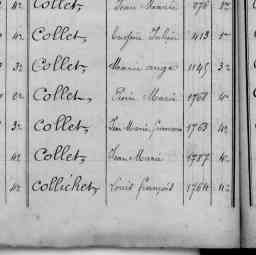 42 Collet, Jean Marie 876 32
42 Collet, Eugène Julien 413
32 Collet, Marie ange 1145 32
Collet, Pierre Marie 1768
32 Collet, Jean Marie 1763 42
42 Collet, Jean Marie 1787 42
42 Collichet, Louis françois 1764 42